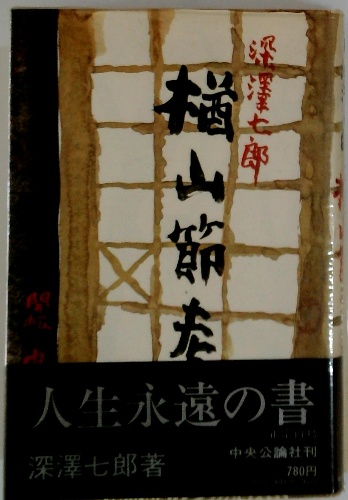 深澤七郎
楢山節考
人生永遠の書
深澤七郎著
中央公論社刊
780円